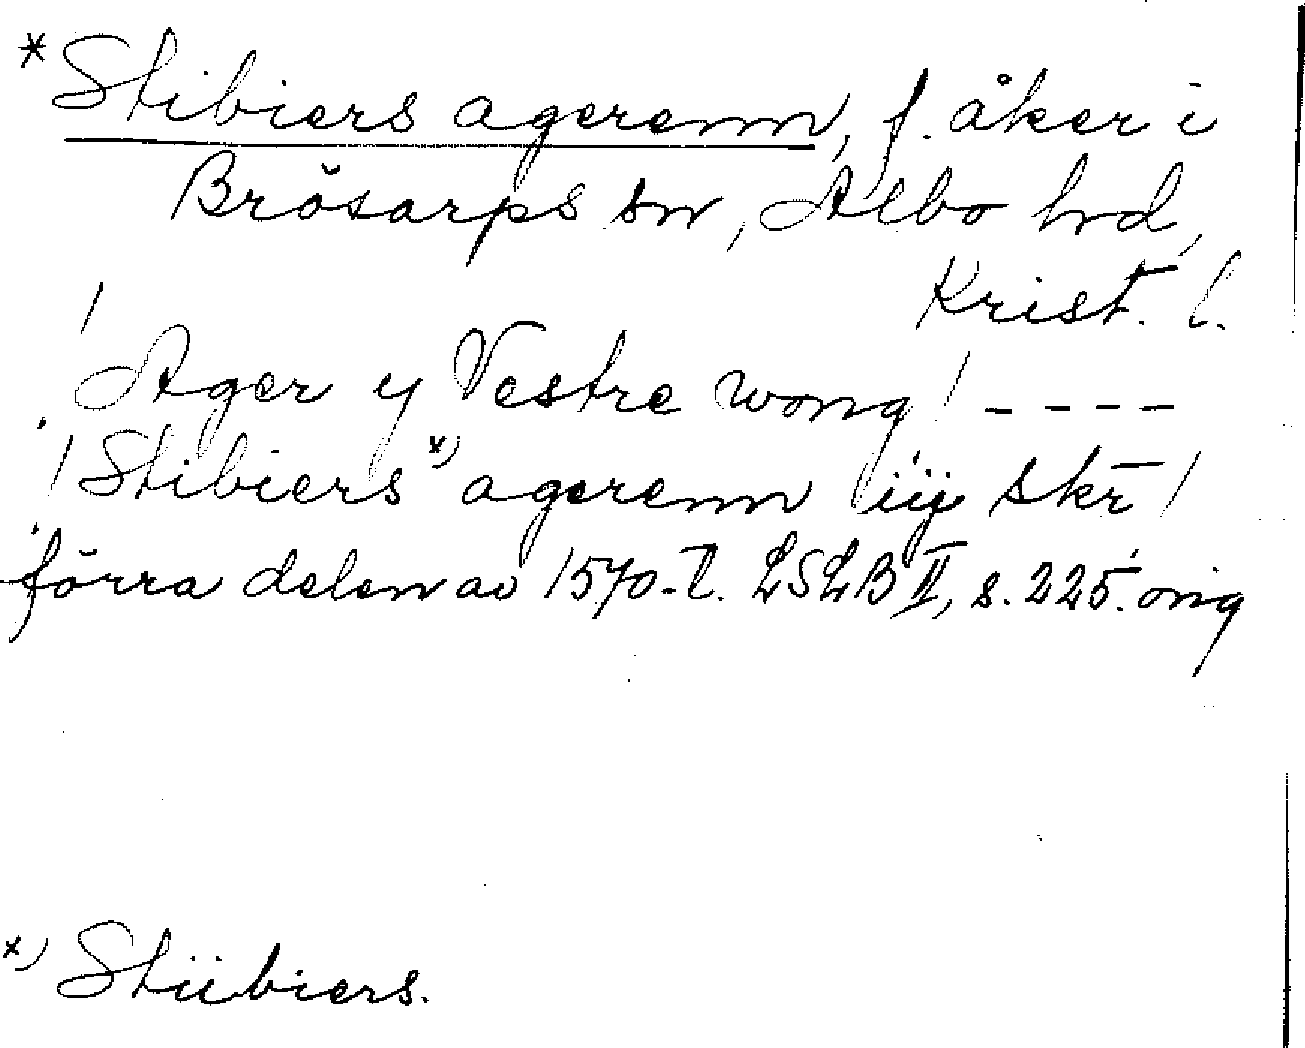 *Stibiers agerenn, f. åker i
Brösarps sn, Albo hd,
Krist. l.
/
Ager y Vestre wong / - - - -
/ Stibiers x) agerenn iij skr /
förra delen av 1570-t. LSLB II, s. 225. orig
x) Stiibiers.